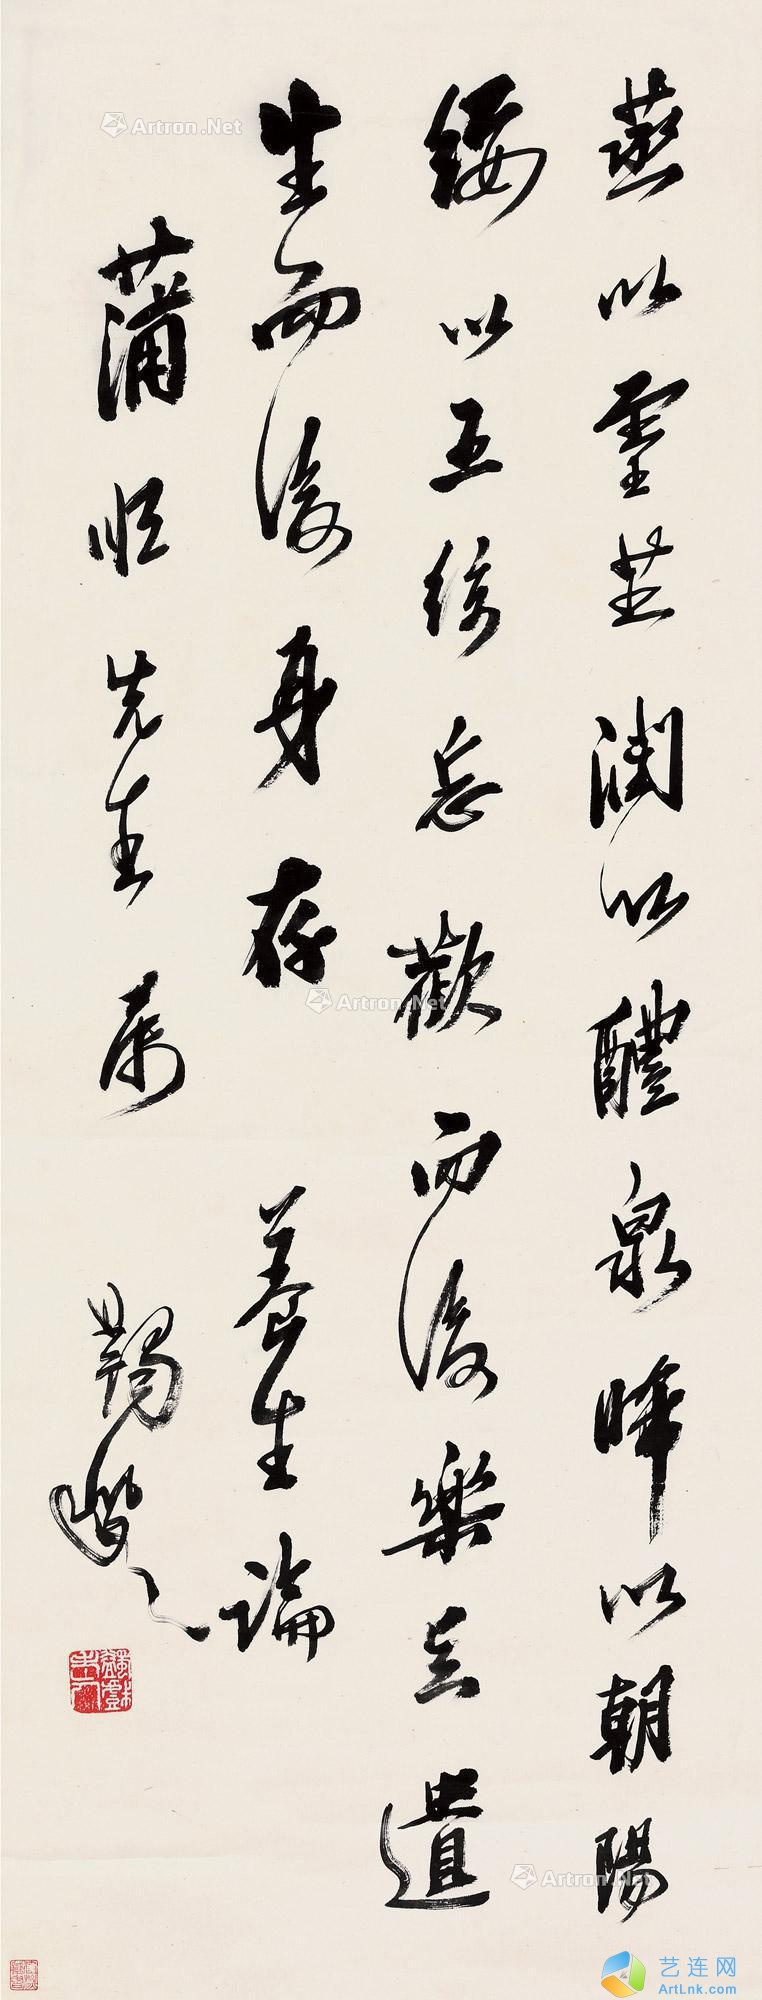 蒸以靈芝潤以醴泉晞以朝陽
綏以五絃忘歡而後樂足遺
生而後身存 養生論
蒲先生屬 蠲叟
蠲戲老人
Artron.Net
Artron.Net
Artron.Net
艺连网
ArtLnk.com